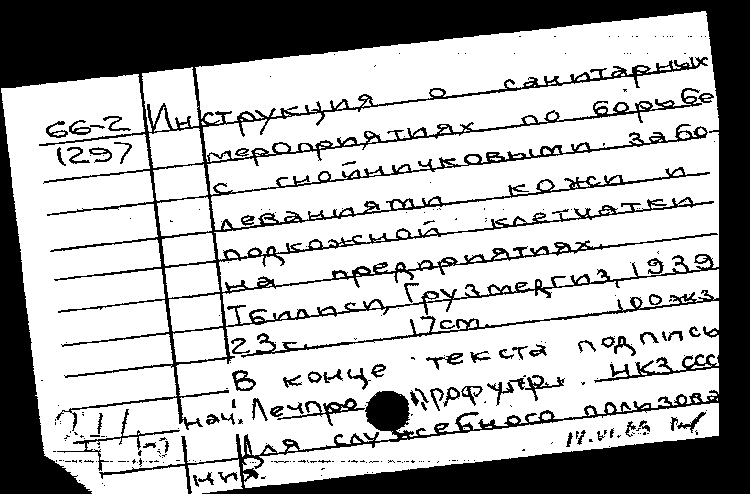 66-2
1297
Инструкция о санитарных
мероприятиях по борьбе
с гнойничковыми забо-
леваниями кожи и
подкожной клетчатки
на предприятиях.
Тбилиси, Грузмедгиз, 1939
23 с. 17 cm. 100 экз.
В конце текста подпись
нач. Лечпро профупр. НКЗ СССР
Для служебного пользова
ния.